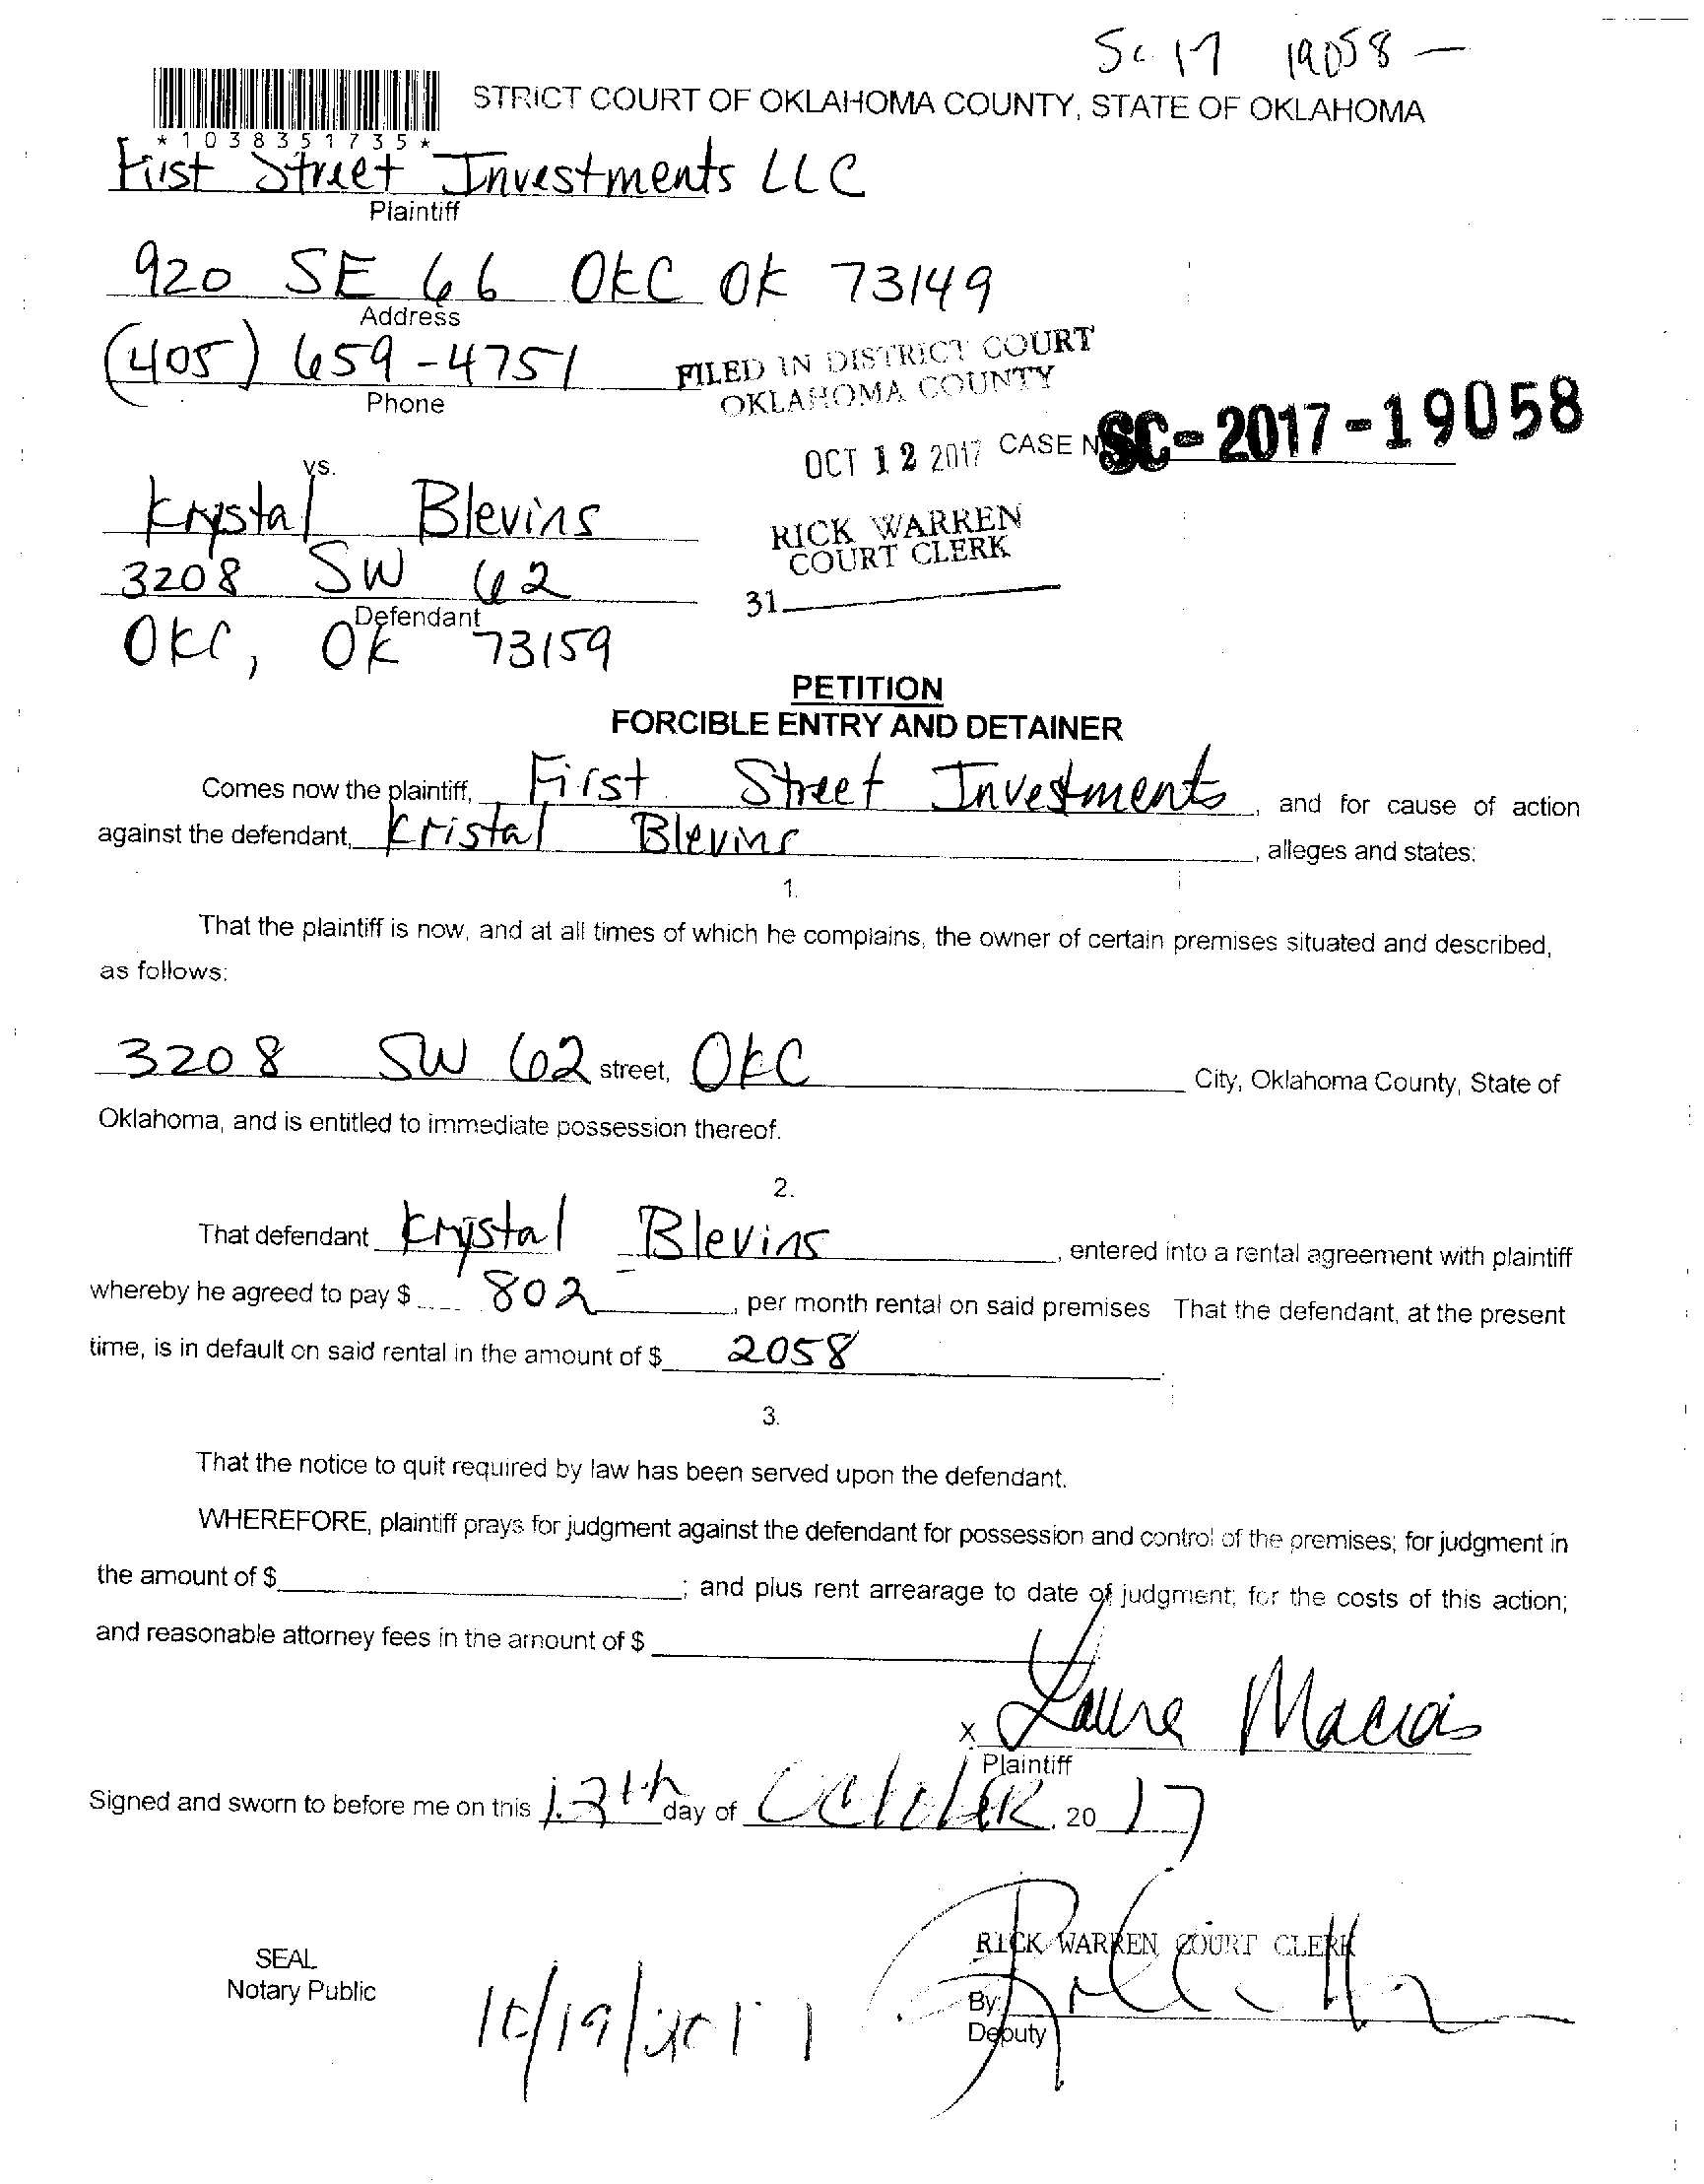 Sc 17 19058 -
STRICT COURT OF OKLAHOMA COUNTY, STATE OF OKLAHOMA
*1038351735*
First Street Investments LLC
Plaintiff
920 SE 66 OKC OK 73149
Address
(405) 659-4751
Phone
FILED IN DISTRICT COURT
OKLAHOMA COUNTY
OCT 12 2017 CASE N SC-2017-19058
vs.
Krystal Blevins
RICK WARREN
COURT CLERK
3208 SW 62
31
Defendant
OKC, OK 73159
PETITION
FORCIBLE ENTRY AND DETAINER
Comes now the plaintiff, First Street Investments, and for cause of action
against the defendant, Kristal Blevins, alleges and states:
1.
That the plaintiff is now, and at all times of which he complains, the owner of certain premises situated and described,
as follows:
3208 SW 62 street, OKC City, Oklahoma County, State of
Oklahoma, and is entitled to immediate possession thereof.
2.
That defendant Krystal Blevins, entered into a rental agreement with plaintiff
whereby he agreed to pay $ 802, per month rental on said premises That the defendant, at the present
time, is in default on said rental in the amount of $ 2058.
3.
That the notice to quit required by law has been served upon the defendant.
WHEREFORE, plaintiff prays for judgment against the defendant for possession and control of the premises; for judgment in
the amount of $ ; and plus rent arrearage to date of judgment; for the costs of this action;
and reasonable attorney fees in the amount of $
x Laura Macias
Plaintiff
Signed and sworn to before me on this 12th day of OCtober, 20 17
SEAL
Notary Public
RICK WARREN COURT CLERK
By:
Deputy
10/19/2017